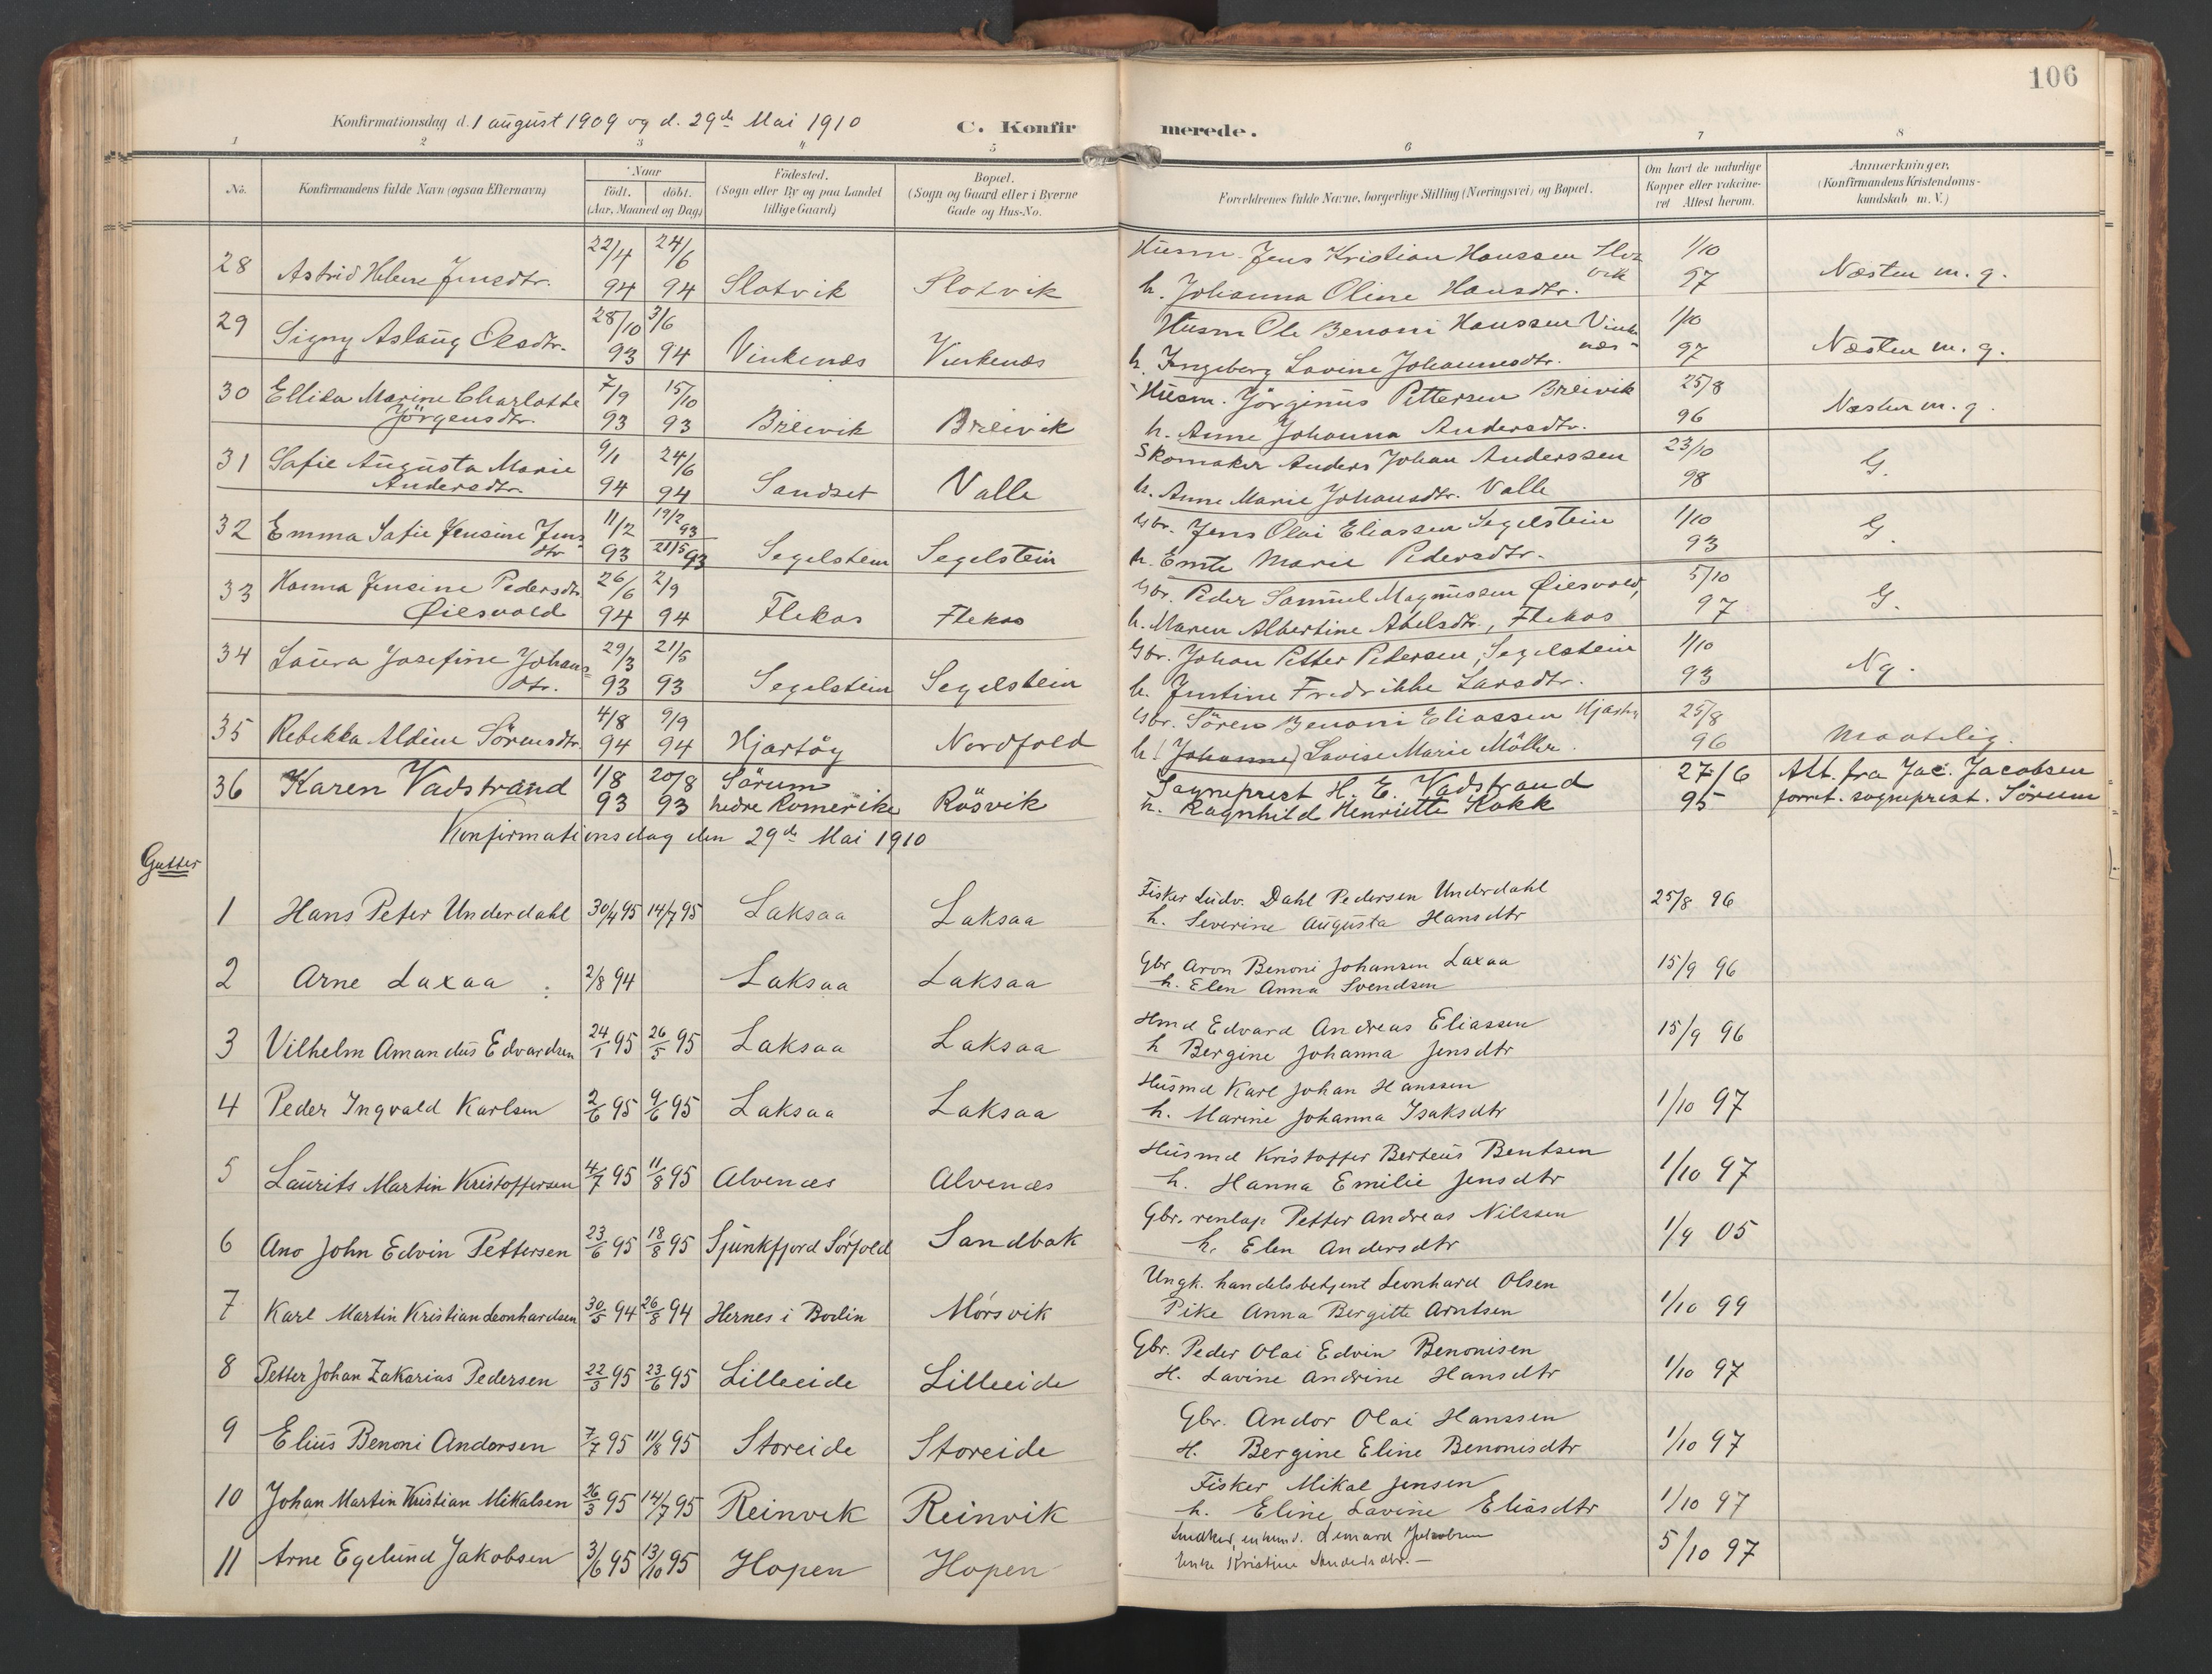 106
Konfirmationsdag d. 1 august 1909 og d. 29de Mai 1910 C. Konfirmerede.
1 2 3 4 5 6 7 8
No. Konfirmandens fulde Navn (ogsaa Efternavn) Naar født. døbt. (Aar, Maaned og Dag) Fødested. (Sogn eller By og paa Landet tillige Gaard) Bopæl. (Sogn og Gaard eller i Byerne Gade og Hus-No. Forældrenes fulde Navne, borgerlige Stilling (Næringsvei) og Bopæl. Om havt de naturlige Kopper eller vakcineret Attest herom. Anmærkninger. (Konfirmandens Kristendomskundskab m. V.)
28 Astrid Helene Jensdtr. 22/4 94 24/6 94 Slotvik Slotvik Husm. Jens Kristian Hanssen Slotvik 1/10 97 Næsten m. g.
h. Johanna Oline Hansdtr.
29 Signy Aslaug Olsdtr. 28/10 93 3/6 94 Vinkenæs Vinkenæs Husm Ole Benoni Hanssen Vinkenæs 1/10 97 Næsten m. g.
h. Ingeborg Lovine Johannesdtr.
30 Ellida Marine Charlotte Jörgensdtr. 7/9 93 15/10 93 Breivik Breivik Husm. Jörginus Pettersen Breivik 25/8 96 Næsten m. g.
h. Anne Johanna Andersdtr.
31 Sofie Augusta Marie Andersdtr. 9/1 94 24/6 94 Sandset Valle Skomaker Anders Johan Anderssen 23/10 98 G.
h. Anne Marie Johansdtr. Valle
32 Emma Sofie Jensine Jensdtr 11/2 93 19/2 93 21/5 93 Segelstein Segelstein Gbr. Jens Olai Eliassen Segelstein 1/10 93 G.
h. Emte Marie Pedersdtr.
33 Hanna Jensine Pedersdtr Øiesvold 26/6 94 2/9 94 Flekos Flekos Gbr. Peder Samuel Magnussen Øiesvold, 5/10 97 G.
h. Maren Albertine Abelsdtr., Flekos
34 Laura Josefine Johansdtr. 29/3 93 21/5 93 Segelstein Segelstein Gbr. Johan Petter Pedersen, Segelstein 1/10 93 Ng.
h. Justine Fredrikke Larsdtr.
35 Rebekka Aldine Sörensdtr. 4/8 94 9/9 94 Hjartöy Nordfold Gbr. Sören Benoni Eliassen Hjartöy 25/8 96 Maatelig.
h. (Johanne) Lovise Marie Möller.
36 Karen Vadstrand 1/8 93 20/8 93 Sörum nedre Romerike Rösvik Sogneprest H. E. Vadstrand 27/6 95 Att. fra Jac. Jacobsen
h. Ragnhild Henriette Kokk forret. sogneprest. Sörum
Konfirmationsdag den 29de Mai 1910
Gutter
1 Hans Peter Underdahl 30/4 95 14/7 95 Laksaa Laksaa Fisker Ludv. Dahl Pedersen Underdahl 25/8 96
h. Severine Augusta Hansdtr
2 Arne Laxaa 2/8 94 Laksaa Laksaa Gbr Aron Benoni Johansen Laxaa 15/9 96
h. Elen Anna Svendsen
3 Vilhelm Amandus Edvardsen 24/1 95 26/5 95 Laksaa Laksaa Hmd Edvard Andreas Eliassen 15/9 96
h Bergine Johanna Jensdtr
4 Peder Ingvald Karlsen 2/6 95 9/6 95 Laksaa Laksaa Husmd Karl Johan Hanssen 1/10 97
h. Marine Johanna Isaksdtr
5 Laurits Martin Kristoffersen 4/7 95 11/8 95 Alvenæs Alvenæs Husmd Kristoffer Berteus Bentsen 1/10 97
h. Hanna Emilie Jensdtr
6 Ano John Edvin Pettersen 23/6 95 18/8 95 Sjunkfjord Sörfold Sandbak Gbr. renlap Petter Andreas Nilssen 1/9 05
h. Elen Andersdtr
7 Karl Martin Kristian Leonhardsen 30/5 94 26/8 94 Hernes i Bodin Mörsvik Ungk. handelsbetjent Leonhard Olsen 1/10 99
Pike Anna Bergitte Arntsen
8 Petter Johan Zakarias Pedersen 22/3 95 23/6 95 Lilleeide Lilleeide Gbr. Peder Olai Edvin Benonisen 1/10 97
H. Lavine Andrine Hansdtr
9 Elius Benoni Andorsen 7/7 95 11/8 95 Storeide Storeide Gbr. Andor Olai Hanssen 1/10 97
H. Bergine Eline Benonisdtr
10 Johan Martin Kristian Mikalsen 26/3 95 14/7 95 Reinvik Reinvik Fisker Mikal Jensen 1/10 97
h. Eline Lavine Eliasdtr
11 Arne Egelund Jakobsen 3/6 95 13/10 95 Hopen Hopen Jakobsen 5/10 97
Enke Kristine Andersdtr. —